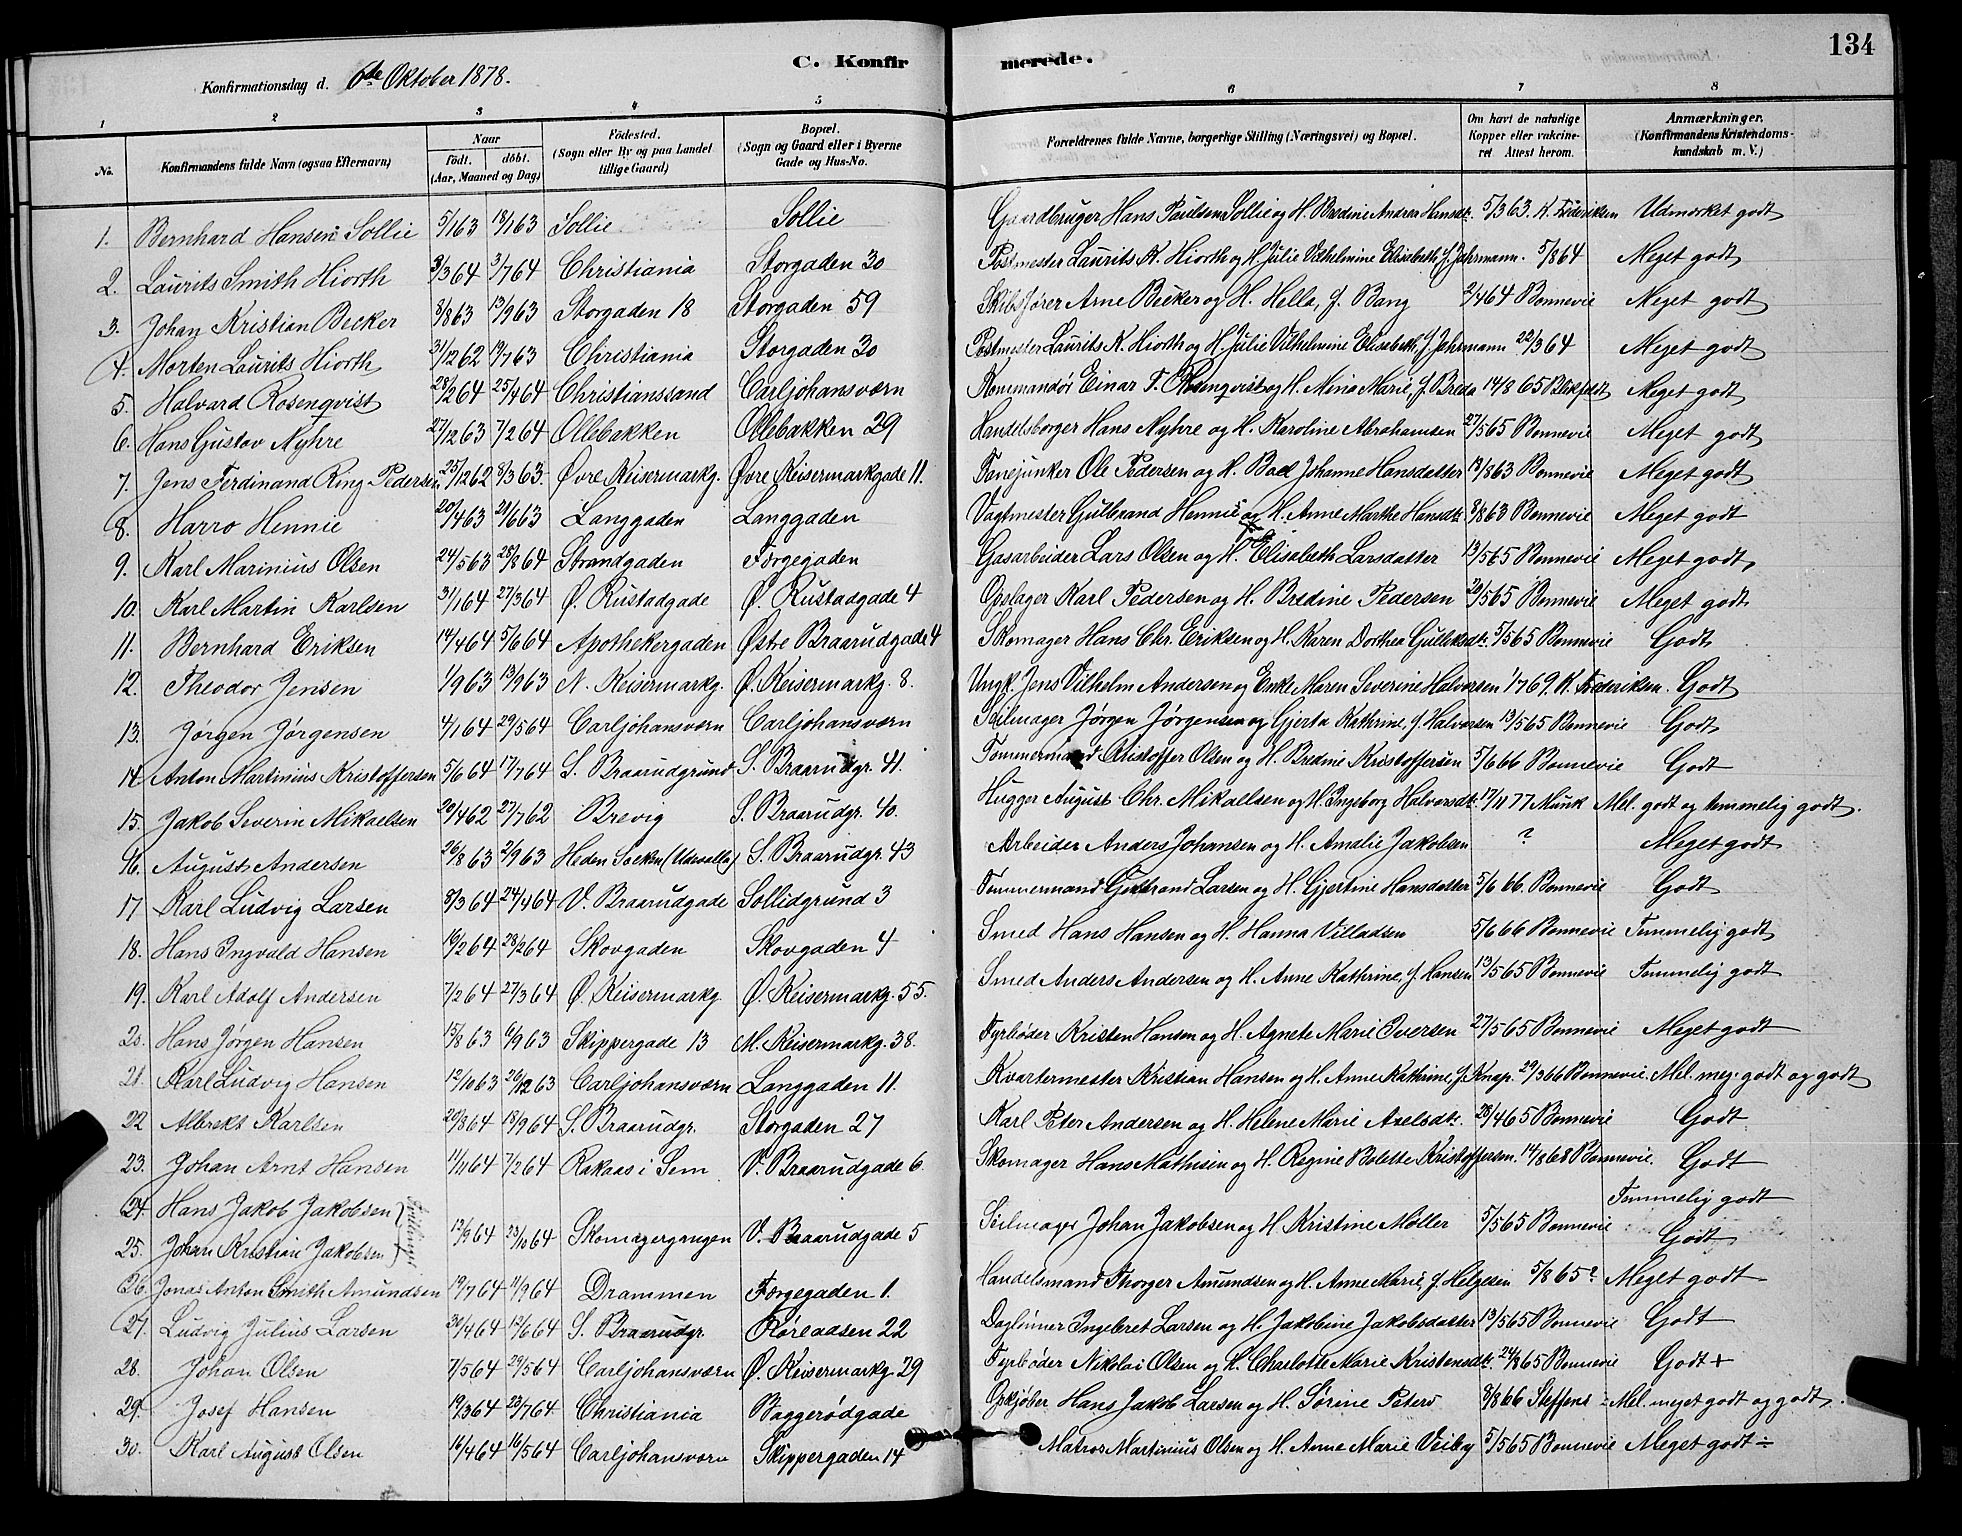 134
C. Konfirmerede.
Konfirmationsdag d. 6te Oktober 1878.
1 2 3 4 5 6 7 8
No. Konfirmandens fulde Navn (ogsaa Efternavn) Naar födt. döbt. (Aar, Maaned og Dag) Födested. (Sogn eller By og paa Landet tillige Gaard) Bopæl. (Sogn og Gaard eller i Byerne Gade og Hus-No. Forældrenes fulde Navne, borgerlige Stilling (Næringsvei) og Bopæl. Om havt de naturlige Kopper eller vakcineret. Attest herom. Anmærkninger. (Konfirmandens Kristendomskundskab m. V.)
1. Bernhard Hansen Sollie 5/1 63 18/1 63 Sollie Sollie Gaardbruger Hans Paulsen Sollie og H. Bredine Andrea Hansdt. 5/3 63. K. Frederiksen Udmærket godt
2. Laurits Smith Hiorth 3/3 64 3/7 64 Christiania Storgaden 30 Postmester Laurits K. Hiorth og H. Julie Vilhelmine Elisabeth f. Jahrmann. 5/8 64 Meget godt
3. Johan Kristian Becker 8/8 63 13/9 63 Storgaden 18 Storgaden 59 Skibsfører Arne Becker og H. Hella, f. Bang 2/4 64 Bonnevie Meget godt
4. Morten Laurits Hiorth 31/12 62 19/7 63 Christiania Storgaden 30 Postmester Laurits K. Hiorth og H. Julie Vilhelmine Elisabeth f. Jahrmann 22/3 64 Meget godt
5. Halvard Rosenqvist 28/2 64 25/4 64 Christianssand Carljohansværn Kommandör Einar T. Rosenqvist og H. Nina Marie, f. Breda 14/8 65 Meget godt
6. Hans Gustav Nyhre 27/12 63 7/2 64 Ollebakken Ollebakken 29 Handelsborger Hans Nyhre og H. Karoline Abrahamsen 27/5 65 Bonnevie Meget godt
7. Jens Ferdinand Ring Pedersen 25/12 62 8/3 63. Øvre Keisermarkg. Øvre Keisermarkgade 11. Fanejunker Ole Pedersen og H. Boel Johanne Hansdatter 13/8 63 Bonnevie Meget godt
8. Harro Hennie 20/4 63 21/6 63 Langgaden Langgaden Vagtmester Gulbrand Hennie og H. Anne Marthe Hansdt. 3/8 63 Bonnevie Meget godt
9. Karl Marinius Olsen 24/5 63 28/8 64 Strandgaden Færgegaden Gasarbeider Lars Olsen og H. Elisabeth Larsdatter 13/5 65 Bonnevie Meget godt
10. Karl Martin Karlsen 31/1 64 27/3 64 Ø. Rustadgade Ø. Rustadgade 4 Opslager Karl Pedersen og H. Bredine Pedersen 20/5 65 Bonnevie Meget godt
11. Bernhard Eriksen 14/4 64 5/6 64 Apothekergaden Østre Braarudgade 4 Skomager Hans Chr. Eriksen og H. Karen Dorthea Gulliksdt. 5/5 65 Bonnevie Godt
12. Theodor Jensen 1/9 63 13/9 63 N. Keisermarkg. Ø. Keisermarkg. 8. Ungk. Jens Vilhelm Andersen og Enke Maren Severine Halvorsen 1/7 69. K. Frederiksen. Godt
13. Jørgen Jørgensen 4/1 64 29/5 64 Carljohansværn Carljohansværn Seilmager Jørgen Jørgensen og Gjerta Kathrine, f. Halvorsen 13/5 65 Bonnevie Godt
14 Anton Martinius Kristoffersen 5/6 64 17/7 64 S. Braarudgrund S. Braarudgr. 41. Tømmermand Kristoffer Olsen og H. Bredine Kristoffersen 5/6 66 Bonnevie Godt
15. Jakob Severin Mikaelsen 20/4 62 27/7 62 Brevig S. Braarudgr. 40. Hugger August Chr. Mikaelsen og H. Ingeborg Halvorsdt. 17/11 77 Munk Mel. godt og temmelig godt.
16. August Andersen 26/8 63 2/9 63 Heden Socken (Udevalla) S. Braarudgr. 43 Arbeider Anders Johansen og H. Amalie Jakobsen ? Meget godt
17 Karl Ludvig Larsen 8/3 64 24/4 64 V. Braarudgade Sollidgrund 3 Tømmermand Gulbrand Larsen og H. Gjertine Hansdatter 5/6 66. Bonnevie Godt
18. Hans Ingvald Hansen 19/2 64 28/2 64 Skovgaden Skovgaden 4 Smed Hans Hansen og H. Hanna Villadsen 5/6 66 Bonnevie Temmelig godt
19. Karl Adolf Andersen 7/2 64 27/3 64 Ø. Keisermarkg. Ø. Keisermarkg. 55. Smed Anders Andersen og H. Anne Kathrine, f. Hansen 13/5 65 Bonnevie Temmelig godt
20. Hans Jørgen Hansen 15/8 63 6/9 63 Skippergade 13 M. Keisermarkg. 38. Fyrbøder Kristen Hansen og H. Agnete Marie Iversen 27/5 65 Bonnevie Meget godt
21. Karl Ludvig Hansen 12/10 63 26/12 63 Carljohansværn Langgaden 11. Kvartermester Kristian Hansen og H. Anne Kathrine, f. Knap. 29/3 66 Bonnevie. Mel. meg. godt og godt
22 Albrekt Karlsen 20/8 64 18/9 64 S. Braarudgr. Storgaden 27 Karl Peter Andersen og H. Helene Marie Axelsdt. 28/4 65 Bonnevie Godt
23. Johan Arnt Hansen 11/1 64 7/2 64 Rakaas i Sem V. Braarudgade 6. Skomager Hans Mathisen og H. Regine Bolette Kristoffersen. 14/8 68 Bonnevie. Godt
24. Hans Jakob Jakobsen Tvillinger Temmelig godt
13/9 64 23/10 64 Skomagergangen V. Braarudgade 5 Seilmager Johan Jakobsen og H. Kristine Möller 5/5 65 Bonnevie
25. Johan Kristian Jakobsen Godt
26. Jonas Anton Smith Amundsen 19/7 64 11/9 64 Drammen Færgegaden 1. Handelsmand Thorger Amundsen og H. Anne Marie, f. Helgesen 5/8 65? Meget godt
27. Ludvig Julius Larsen 30/4 64 12/6 64 S. Braarudgr. Röreaasen 22 Daglönner Ingebret Larsen og H. Jakobine Jakobsdatter 13/5 65 Bonnevie Godt
28. Johan Olsen 7/5 64 29/5 64 Carljohansværn Ø. Keisermarkg. 29 Fyrbøder Nikolai Olsen og H. Charlotte Marie Kristensdt. 24/8 65 Bonnevie Godt +
29. Josef Hansen 19/3 64 23/7 64 Christiania Baggerødgade Opkjøber Hans Jakob Larsen og H. Sörine Peters 8/8 66 Steffens Mel. meget godt og godt.
30. Karl August Olsen 16/4 64 16/5 64 Carljohansværn Skippergaden 14 Matros Martinius Olsen og H. Anne Marie Veiby 5/5 65 Bonnevie Meget godt ÷